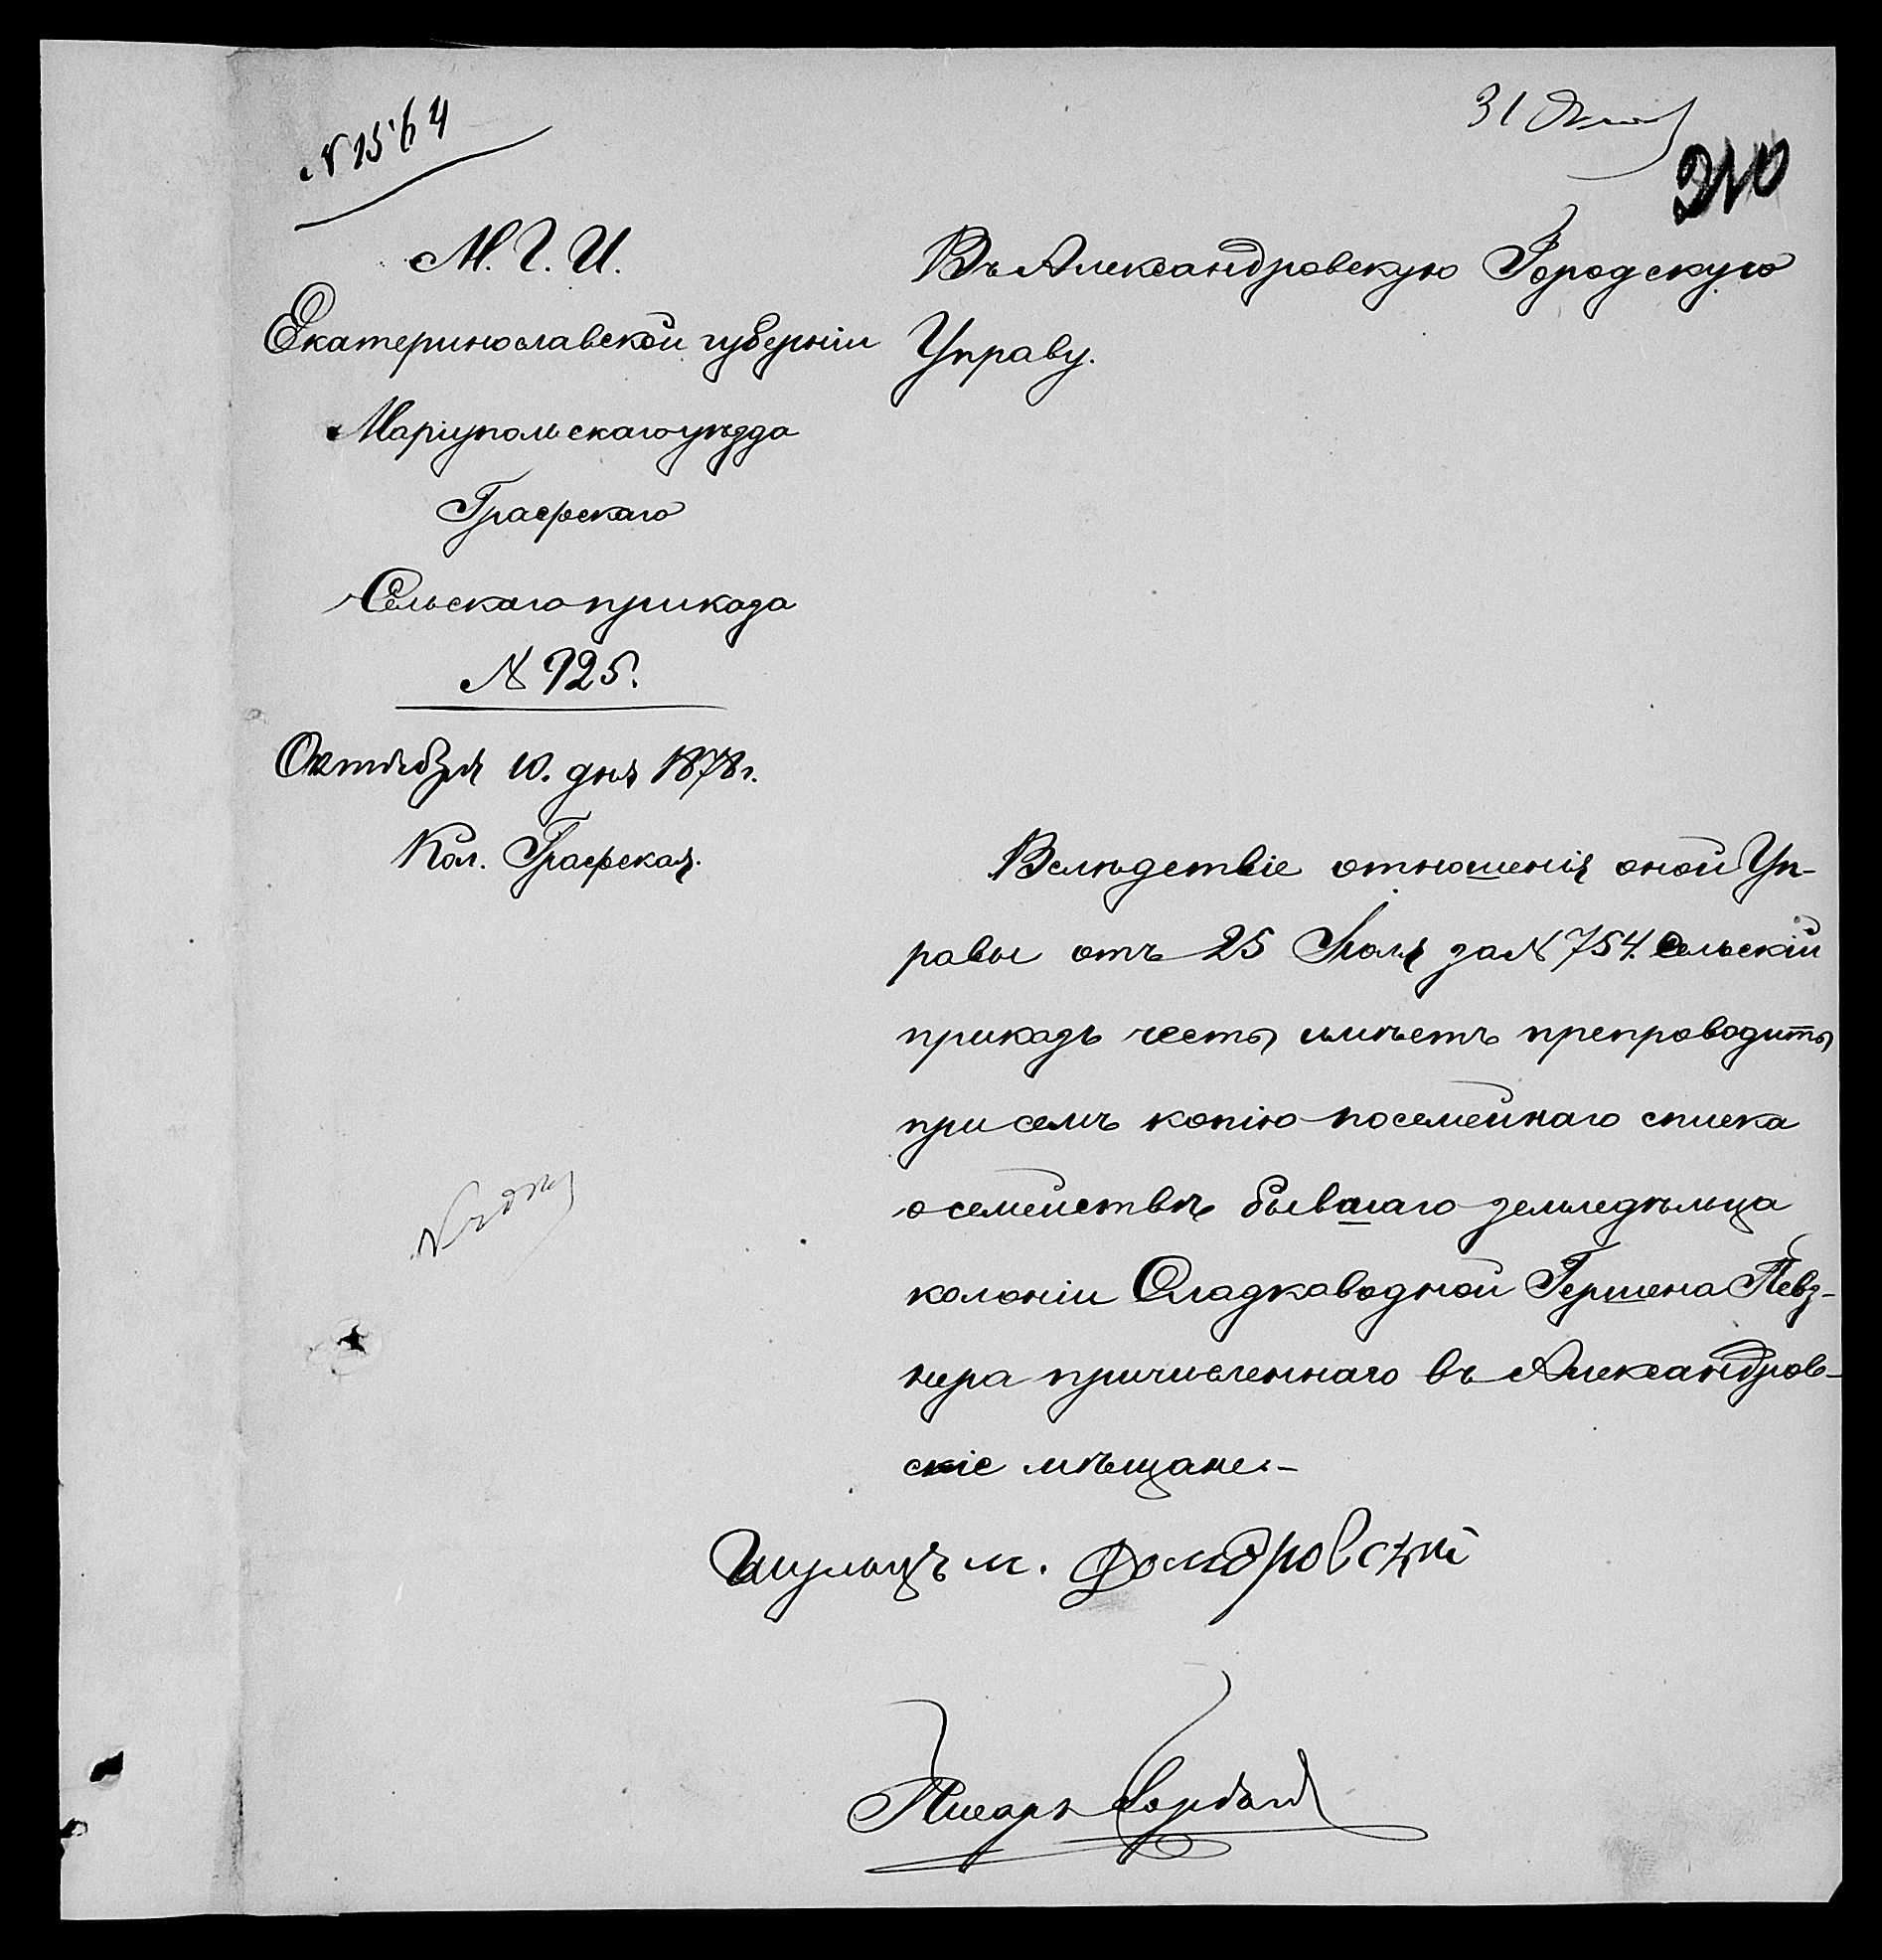 № 1564
31
210
М. Г. И.
Екатеринославской губерніи
Маріупольскаго уѣзда
Графскаго
Сельскаго приказа
№ 925.
Октября 10. дня 1878 г.
Кол. Графская.
Въ Александровскую Городскую
Управу.
Вслѣдствіе отношенія оной Уп-
равы отъ 25 Іюля за № 754. Сельскій
приказъ честь имѣетъ препроводить
при семъ копію посемейнаго списка
о семействѣ бывшаго земледѣльца
колоніи Сладководной Гершена Певз-
нера причисленнаго въ Александров-
скіе мѣщане.-
Шульцъ м. Домбровскій
Писарь